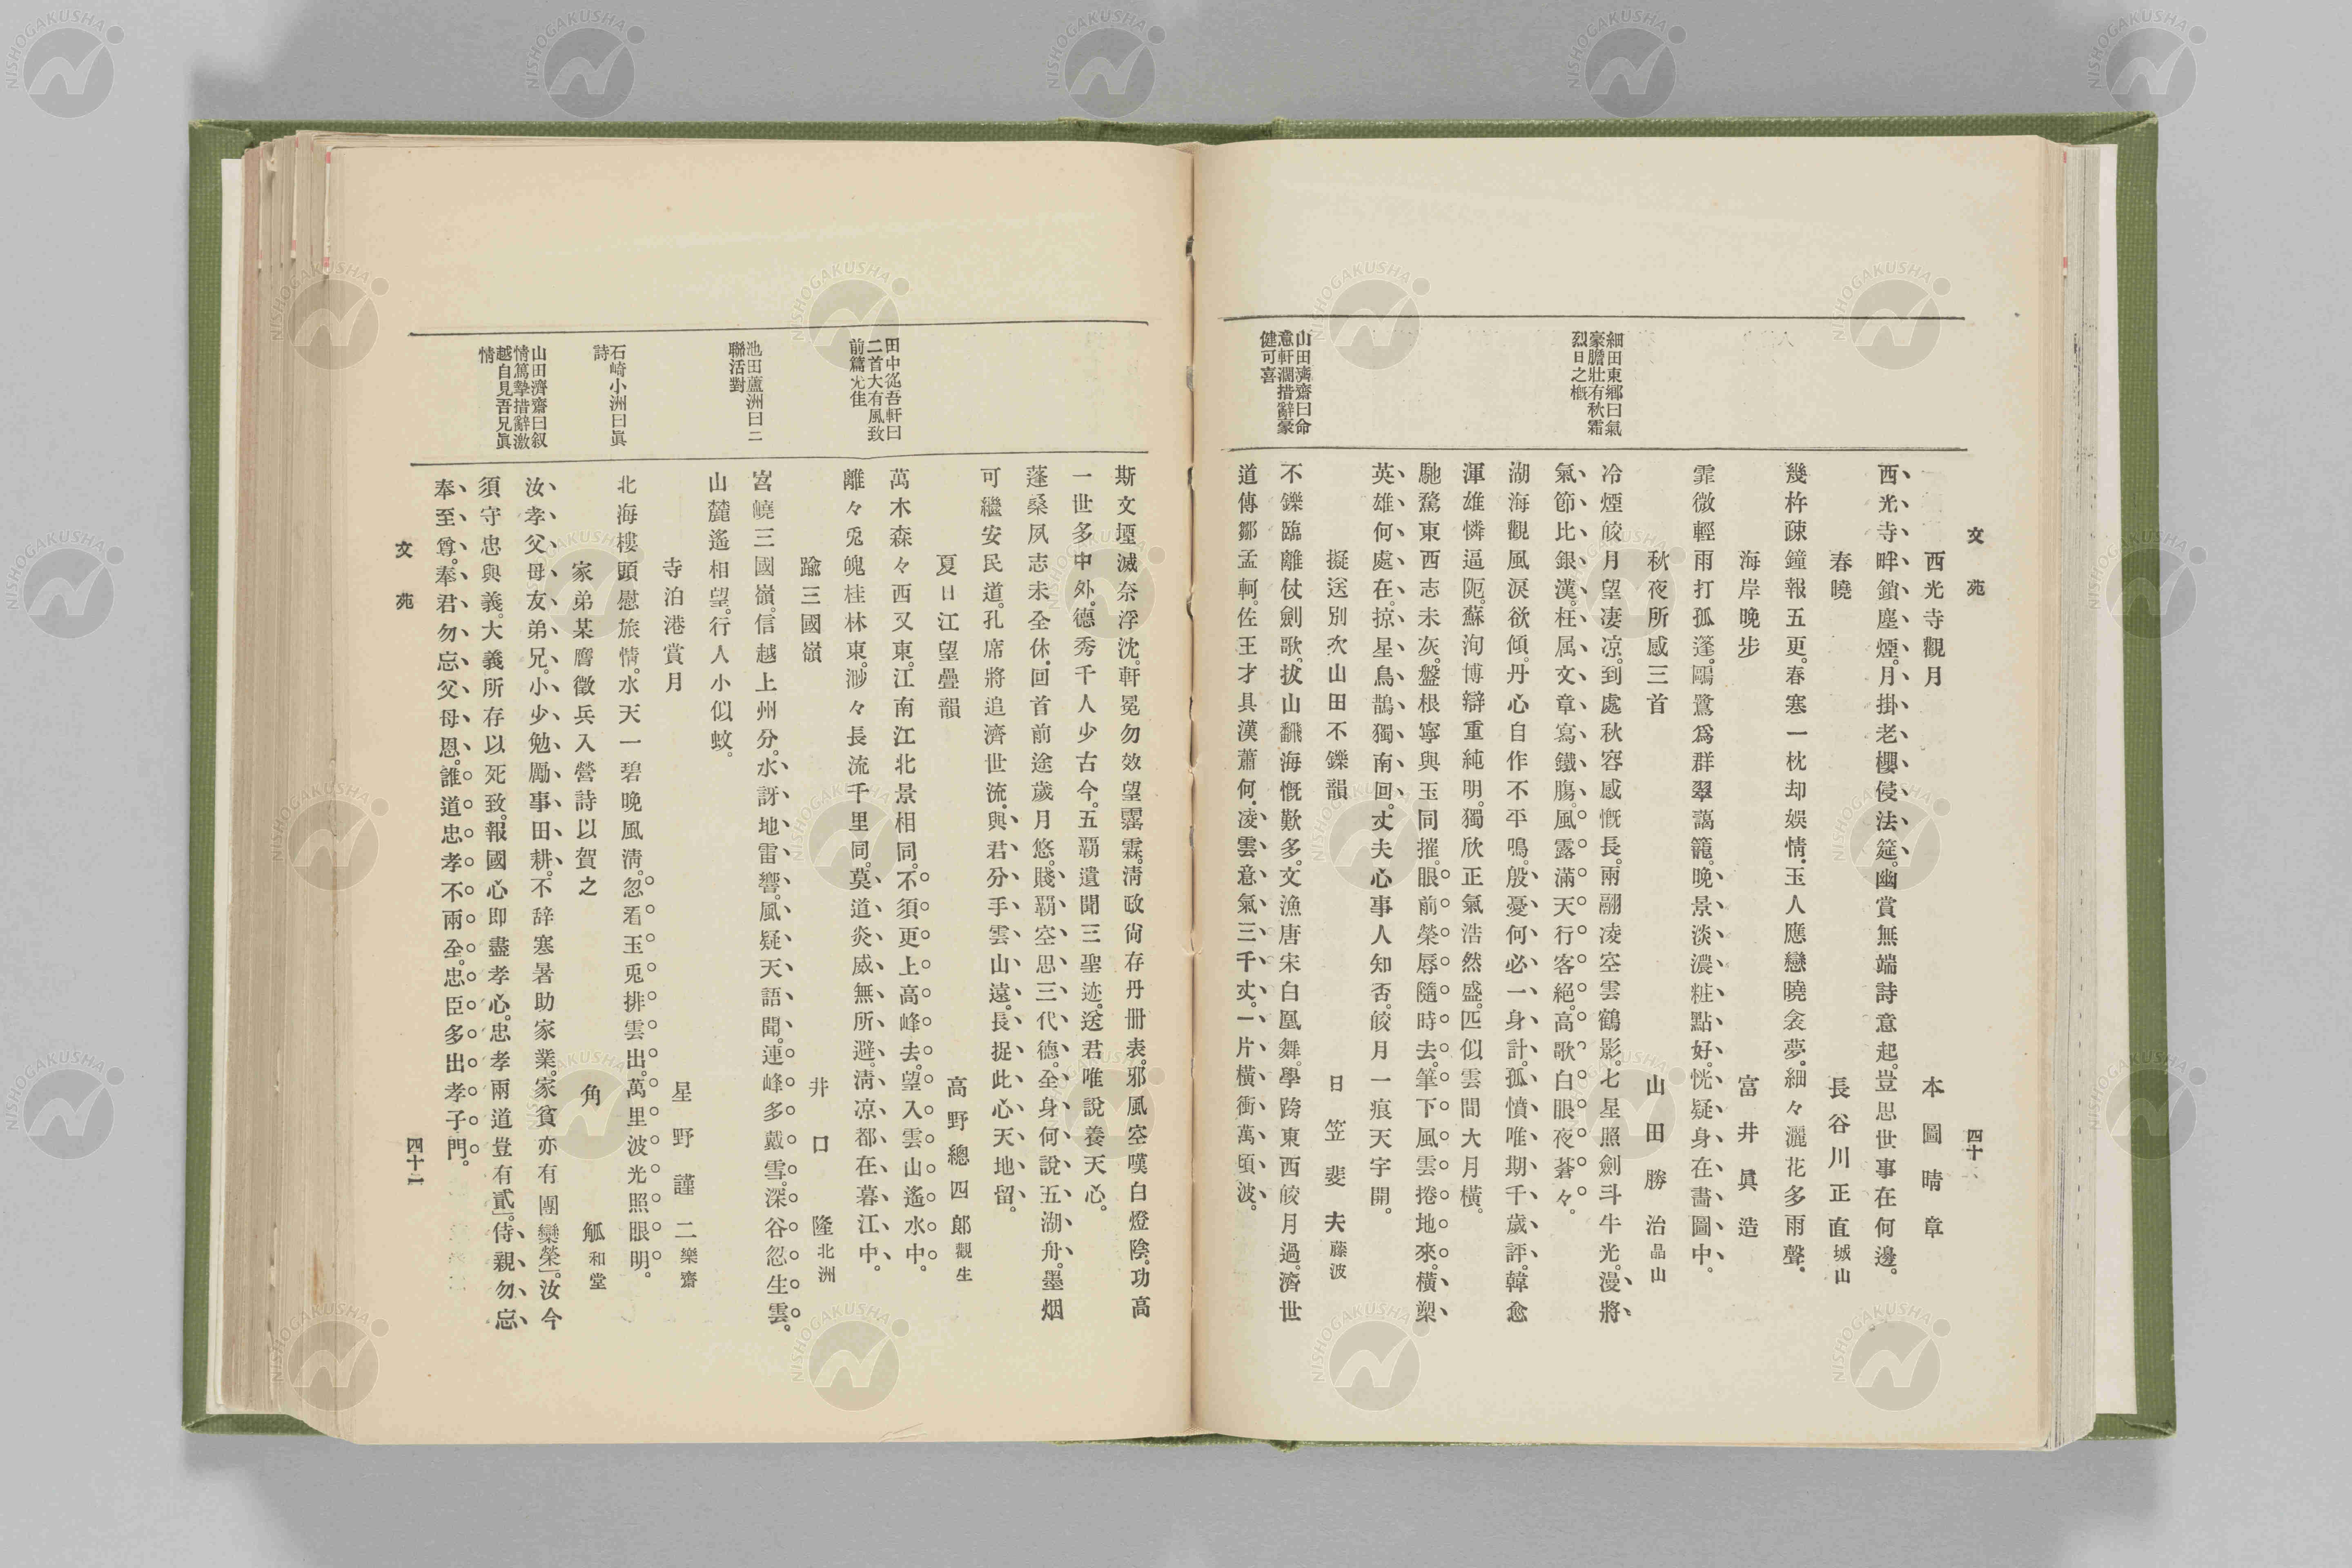 文苑
四十一
西光寺觀月
本圖晴章
西光寺畔鎖塵煙。月掛老櫻侵法筵。幽賞無端詩意起。豈思世事在何邊。
春曉
長谷川正直城山
幾杵疎鐘報五更。春塞一枕却娯情。玉人應戀曉衾夢。細々灑花多雨聲。
海岸晩步
富井眞造
霏微輕雨打孤篷。鷗鷺爲群翠蒻籠。晩景淡濃粧點好。恍疑身在畵圖中。
秋夜所感三首
山田勝治晶山
細田東鄕曰氣
豪膽壯有秋霜
烈日之槪
冷煙皎月望凄凉。到處秋容感慨長。兩翮凌空雲鶴影。七星照劍斗牛光。漫將
氣節比銀漢。枉属文章寫鐵膓。風露滿天行客絕。高歌白眼夜蒼々。
湖海觀風淚欲傾。丹心自作不平鳴。殷憂何必一身計。孤憤唯期千歲評。韓愈
渾雄憐逼阨。蘇洵博辯重純明。獨欣正氣浩然盛。匹似雲間大月橫。
馳騖東西志未灰。盤根寧與玉同摧。眼前榮辱隨時去。筆下風雲捲地來。橫槊
英雄何處在。掠星烏鵲獨南回。丈夫心事人知否。皎月一痕天宇開。
擬送別次山田不鑠韻
日笠斐夫藤波
山田濟齋曰命
意軒濶措辭豪
健可喜
不鑠臨離仗劍歌。拔山飜海慨歎多。文漁唐宋白凰舞。學跨東西皎月過。濟世
道傳鄒孟軻。佐王才具漢蕭何。凌雲意氣三千丈。一片橫衝萬頃波。
斯文堙滅奈浮沈。軒冕勿效望霱霖。淸政尙存丹册表。邪風空嘆白燈陰。功高
一世多中外。德秀千人少古今。五覇遺聞三聖迹。送君唯說養天心。
蓬桑夙志未全休。回首前途歲月悠。賤覇空思三代德。全身何說五湖舟。墨烟
可繼安民道。孔席將追濟世流。與君分手雲山遠。長捉此心天地留。
夏日江望疊韻
高野總四郞觀生
田中從吾軒曰
二首大有風致
前篇尤佳
萬木森々西又東。江南江北景相同。不須更上高峰去。望入雲山遙水中。
離々兎魄桂林東。渺々長流千里同。莫道炎威無所避。淸凉都在暮江中。
踰三國嶺
井口隆北洲
池田蘆洲曰二
聯活對
宮嶢三國嶺。信越上州分。水訝地雷響。風疑天語聞。連峰多戴雪。深谷忽生雲。
山麓遙相望。行人小似蚊。
寺泊港賞月
星野謹二樂齋
石崎小洲曰眞
詩
北海樓頭慰旅情。水天一碧晩風淸。忽看玉兎排雲出。萬里波光照眼明。
家弟某膺徵兵入營詩以賀之
角觚和堂
山田濟齋曰叙
情篤摯措辭激
越自見吾兄眞
情
汝孝父母友弟兄。小少勉勵事田耕。不辞寒暑助家業。家貧亦有團欒榮」。汝今
須守忠與義。大義所存以死致。報國心即盡孝心。忠孝兩道豈有貳」。侍親勿忘
奉至尊。奉君勿忘父母恩。誰道忠孝不兩全。忠臣多出孝子門。
文苑
四十二